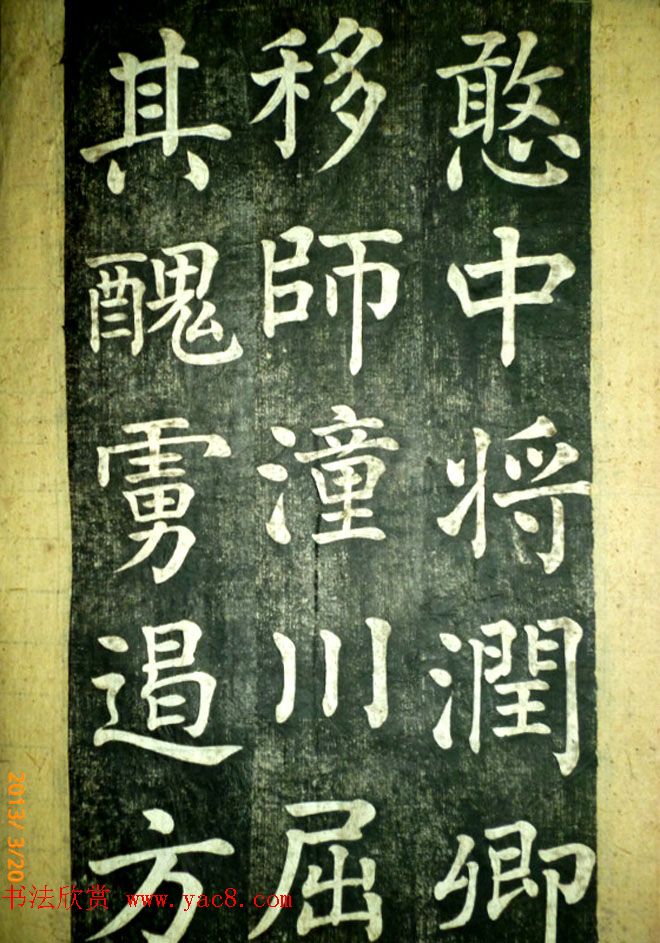 憨中将潤卿
移師潼川屈
其醜虜遏方
2013/ 3/20
书法欣赏 www.yac8.com